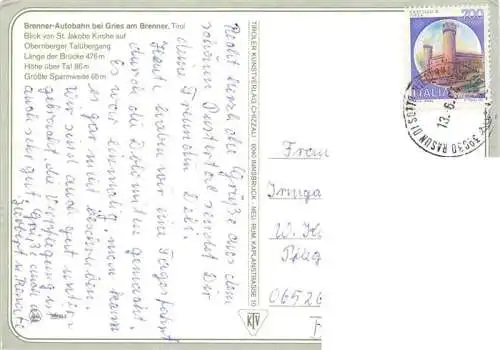 Brenner-Autobahn bei Gries am Brenner, Tirol
Blick von St. Jakobs Kirche auf
Obernberger Talübergang
Länge der Brücke 476m
Höhe über Tal 86m
Größte Spannweite 68m
Recht herzliche Grüße aus dem
schönen Pustertal sendet Dir
deine Freundin Dora.
Heute haben wir eine Tagesfahrt
durch die Dolomiten gemacht.
Es war einmalig, man kann
es gar nicht beschreiben.
Wir sind auch gut unter-
gebracht, die Verpflegung ist
auch sehr gut. Grüße auch von
Herbert u. Renate
TIROLER KUNSTVERLAG CHIZZALI · 6040 INNSBRUCK - NEU-RUM KAPLANSTRASSE 10
KTV
700
ITALIA
39030 RASUN DI SOTTO
13.6.
Frau
Irmga
W. K
Pfleg
06526